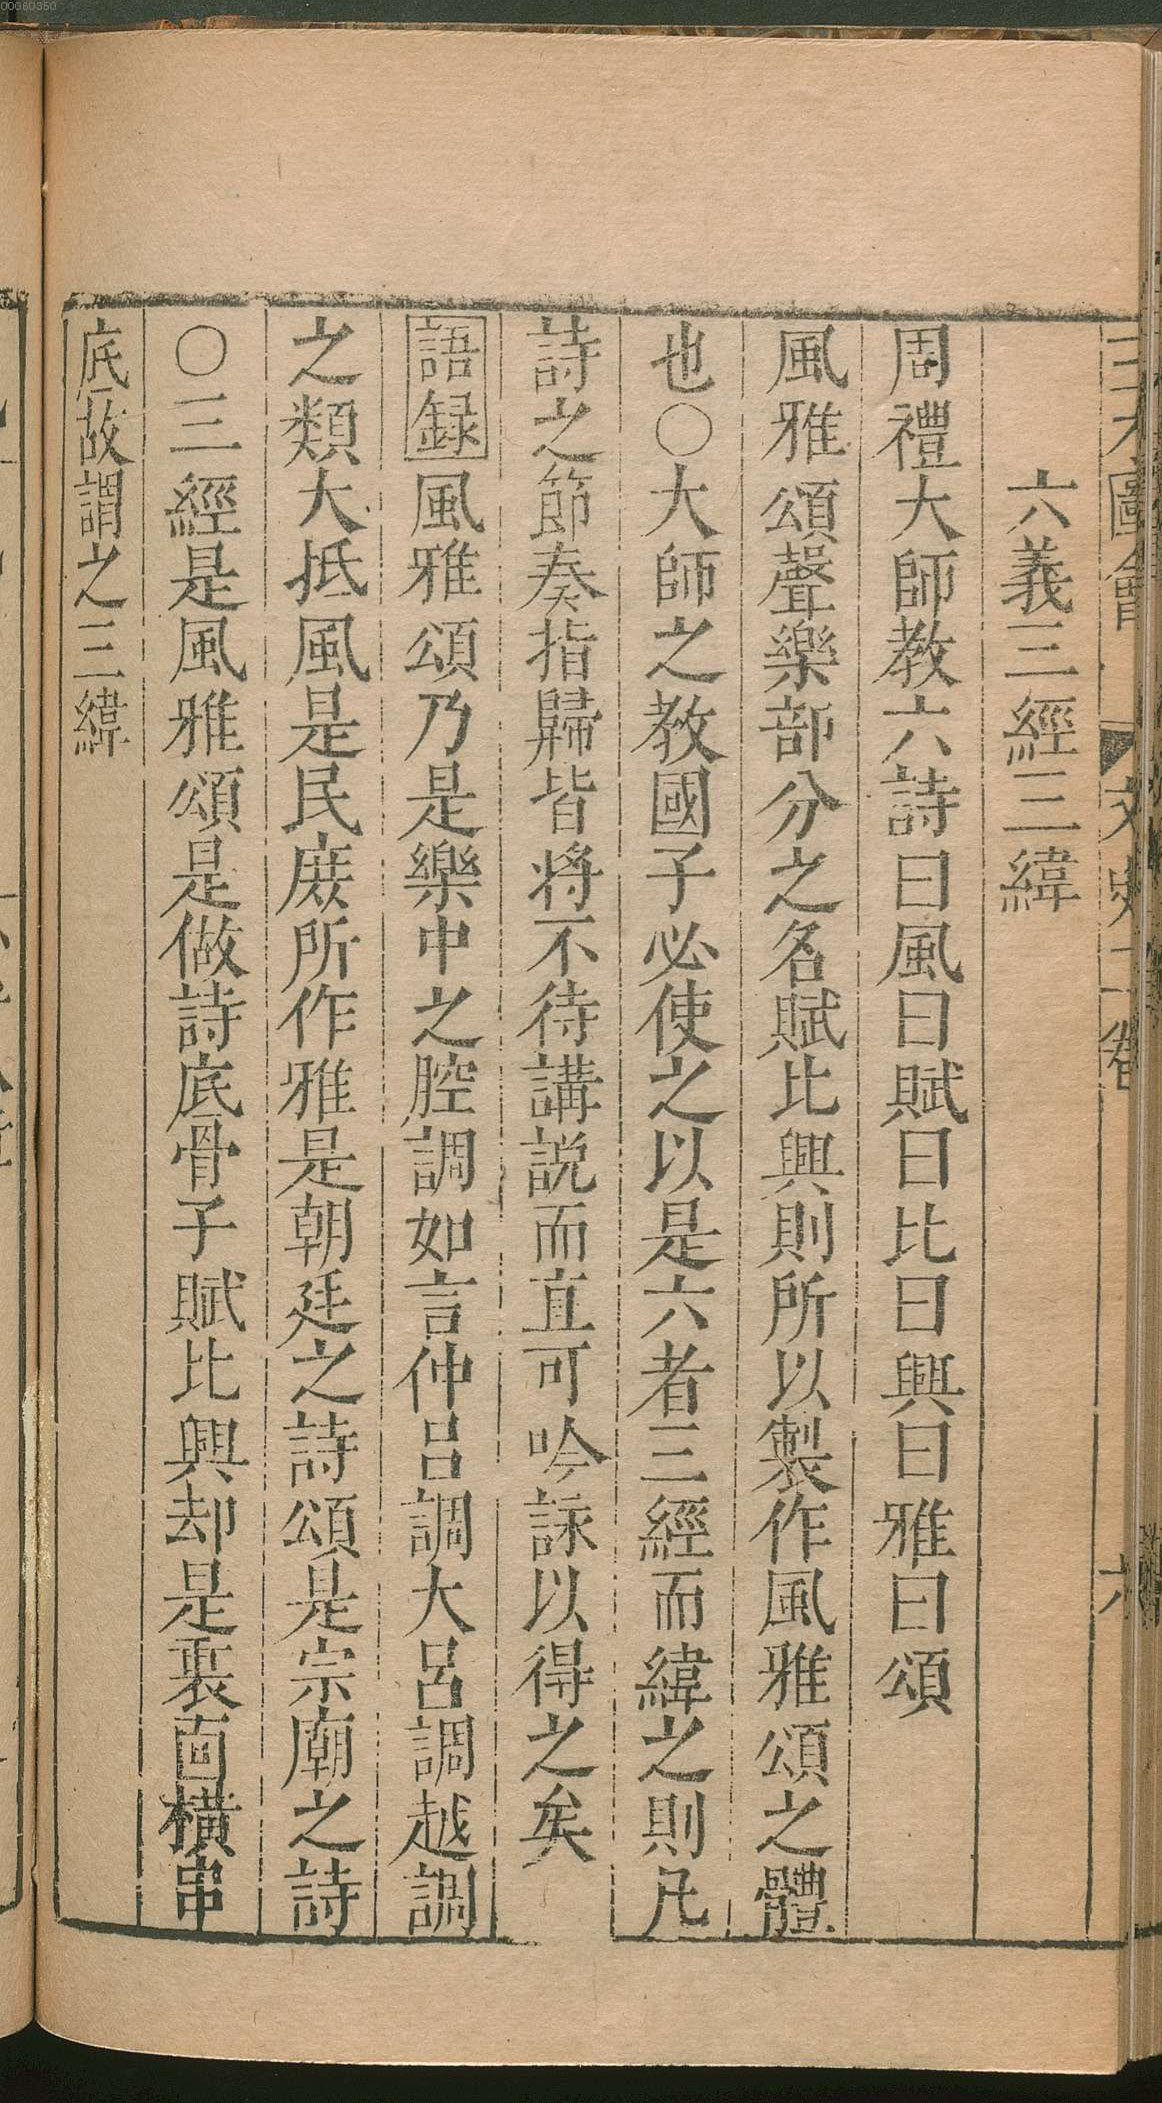 00060350
三才圖會
文史二卷
六
六義三經三緯
周禮大師教六詩曰風曰賦曰比曰興曰雅曰頌
風雅頌聲樂部分之名賦比興則所以製作風雅頌之體
也○大師之教國子必使之以是六者三經而緯之則凡
詩之節奏指歸皆將不待講説而直可吟詠以得之矣
語録風雅頌乃是樂中之腔調如言仲呂調大呂調越調
之類大抵風是民庻所作雅是朝廷之詩頌是宗廟之詩
○三經是風雅頌是做詩底骨子賦比興却是裏面橫串
底故謂之三緯